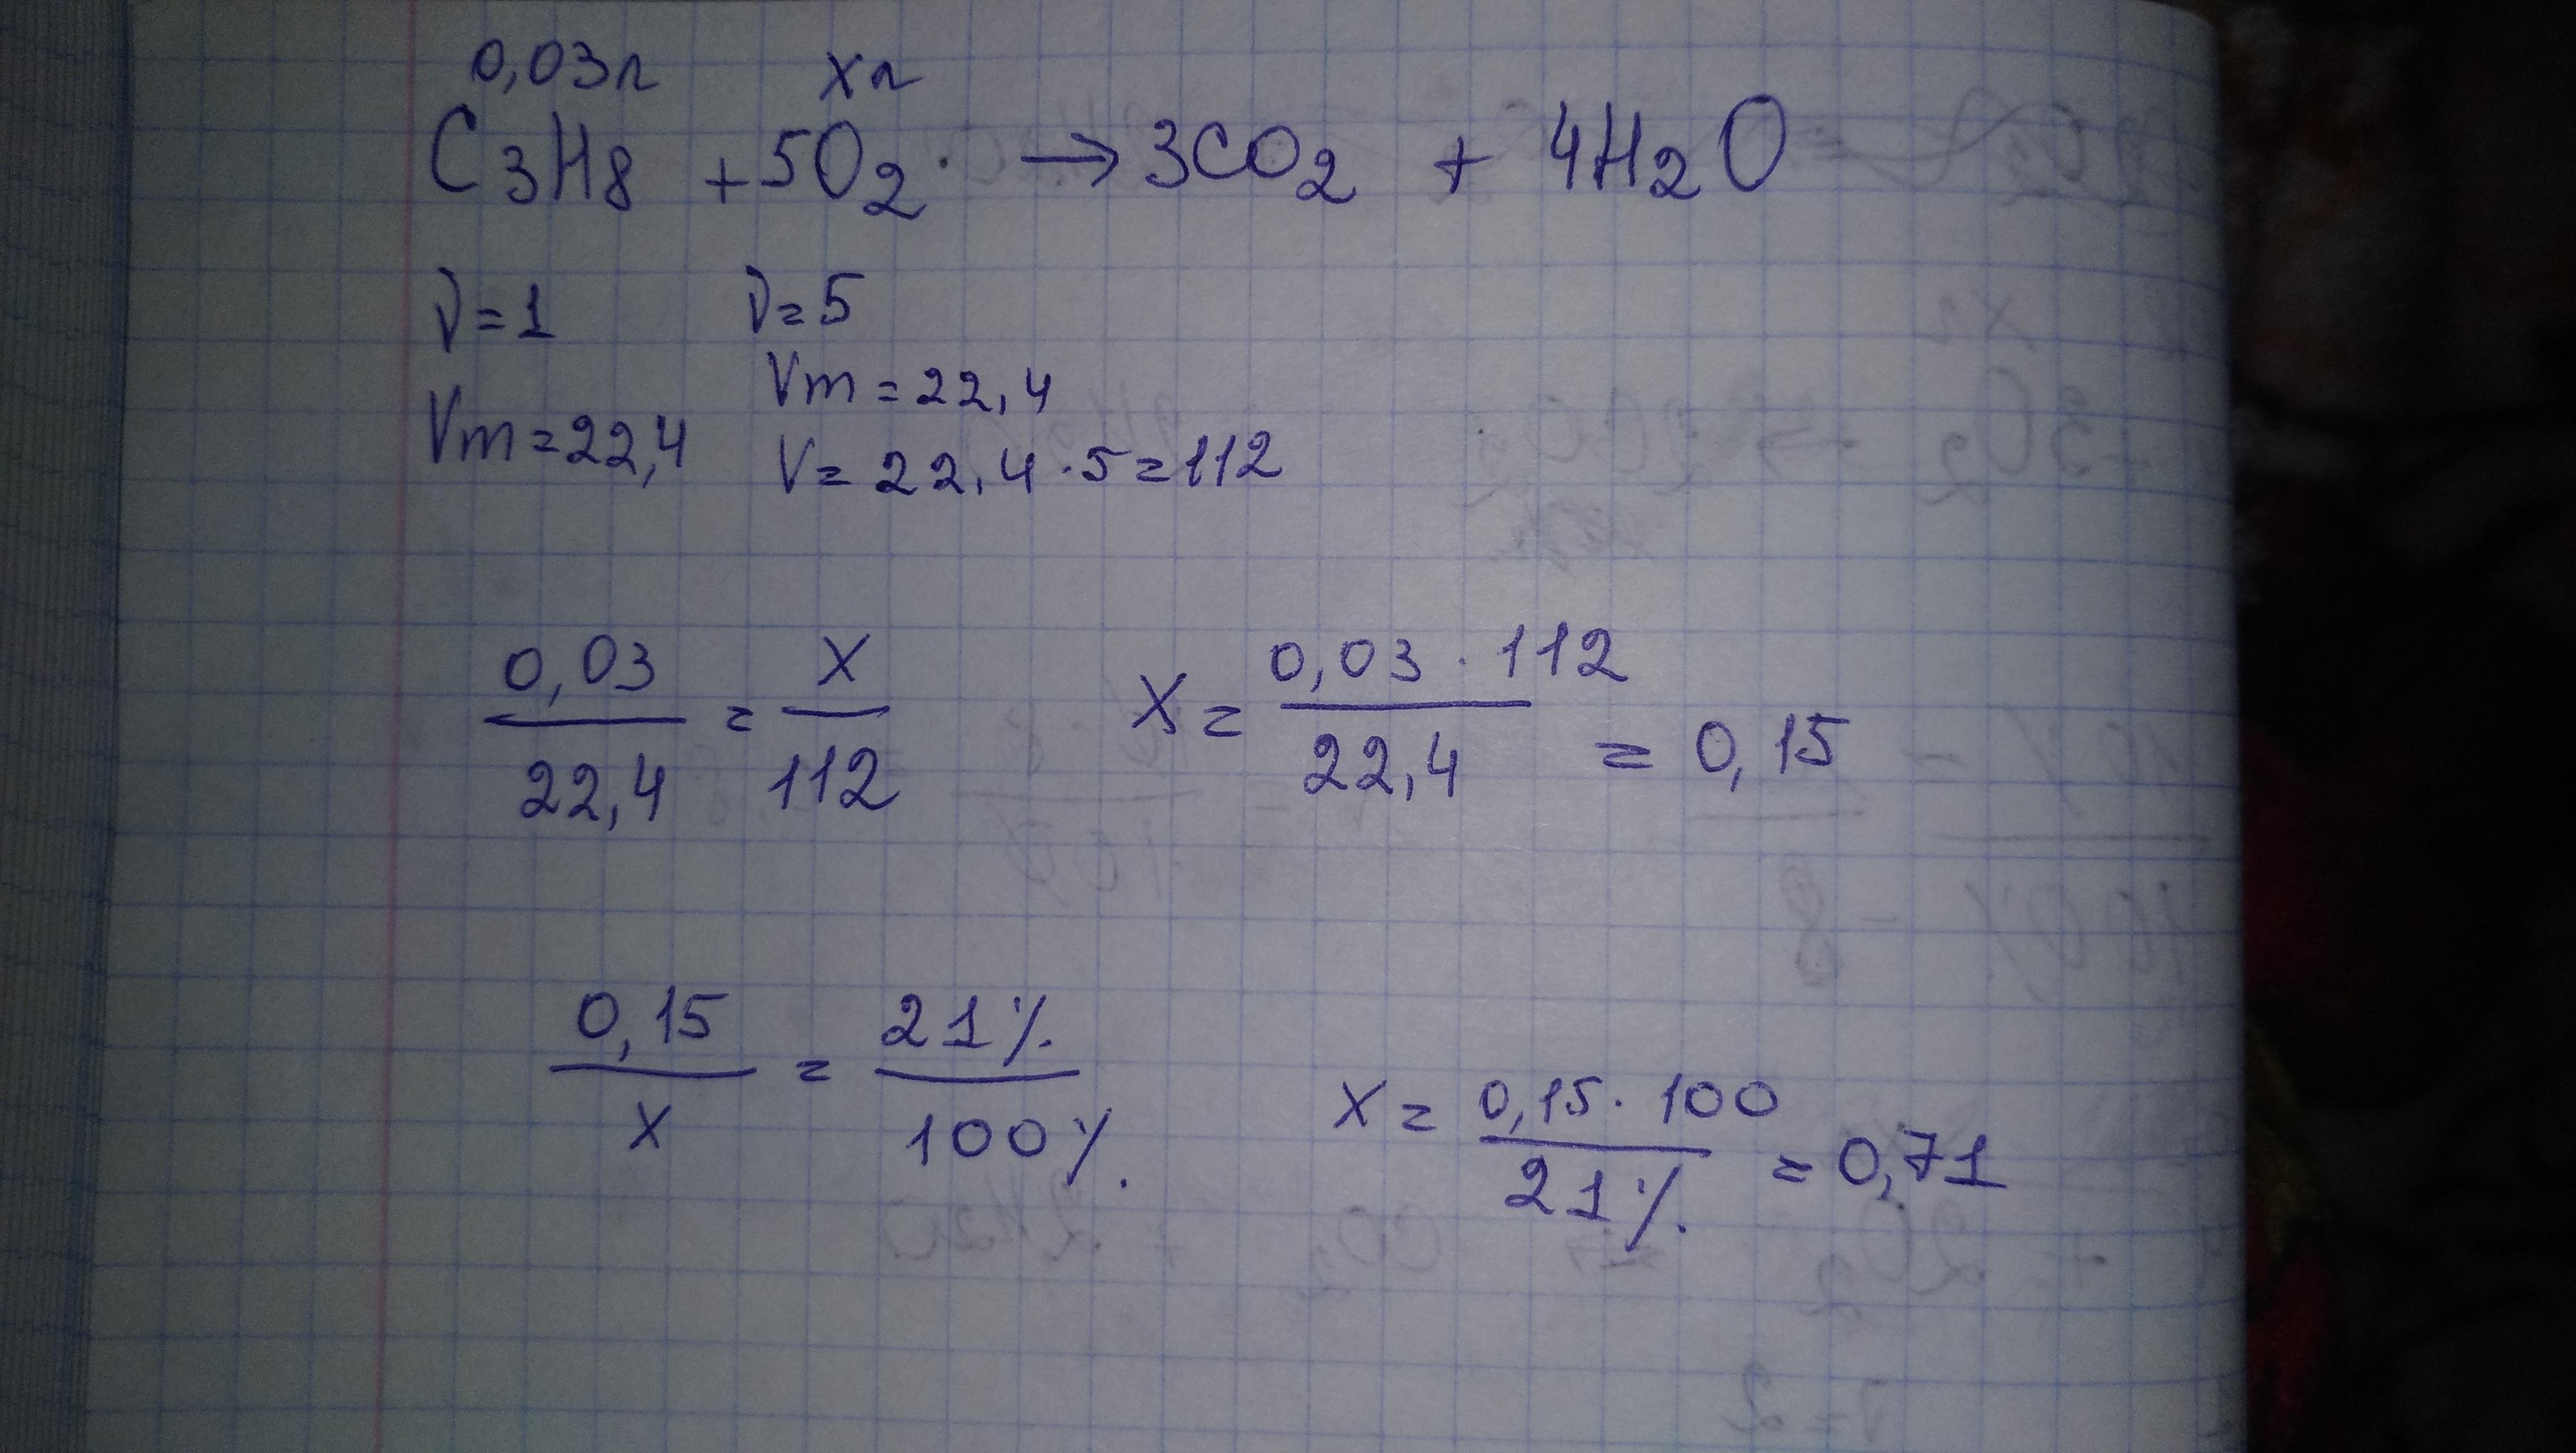 0,03л xл
C3H8 + 5O2 → 3CO2 + 4H2O
ν=1 ν=5
Vm=22,4 Vm=22,4
V=22,4·5=112
0,03/22,4 = x/112 x = 0,03·112/22,4 = 0,15
0,15/x = 21%/100% x = 0,15·100/21% = 0,71